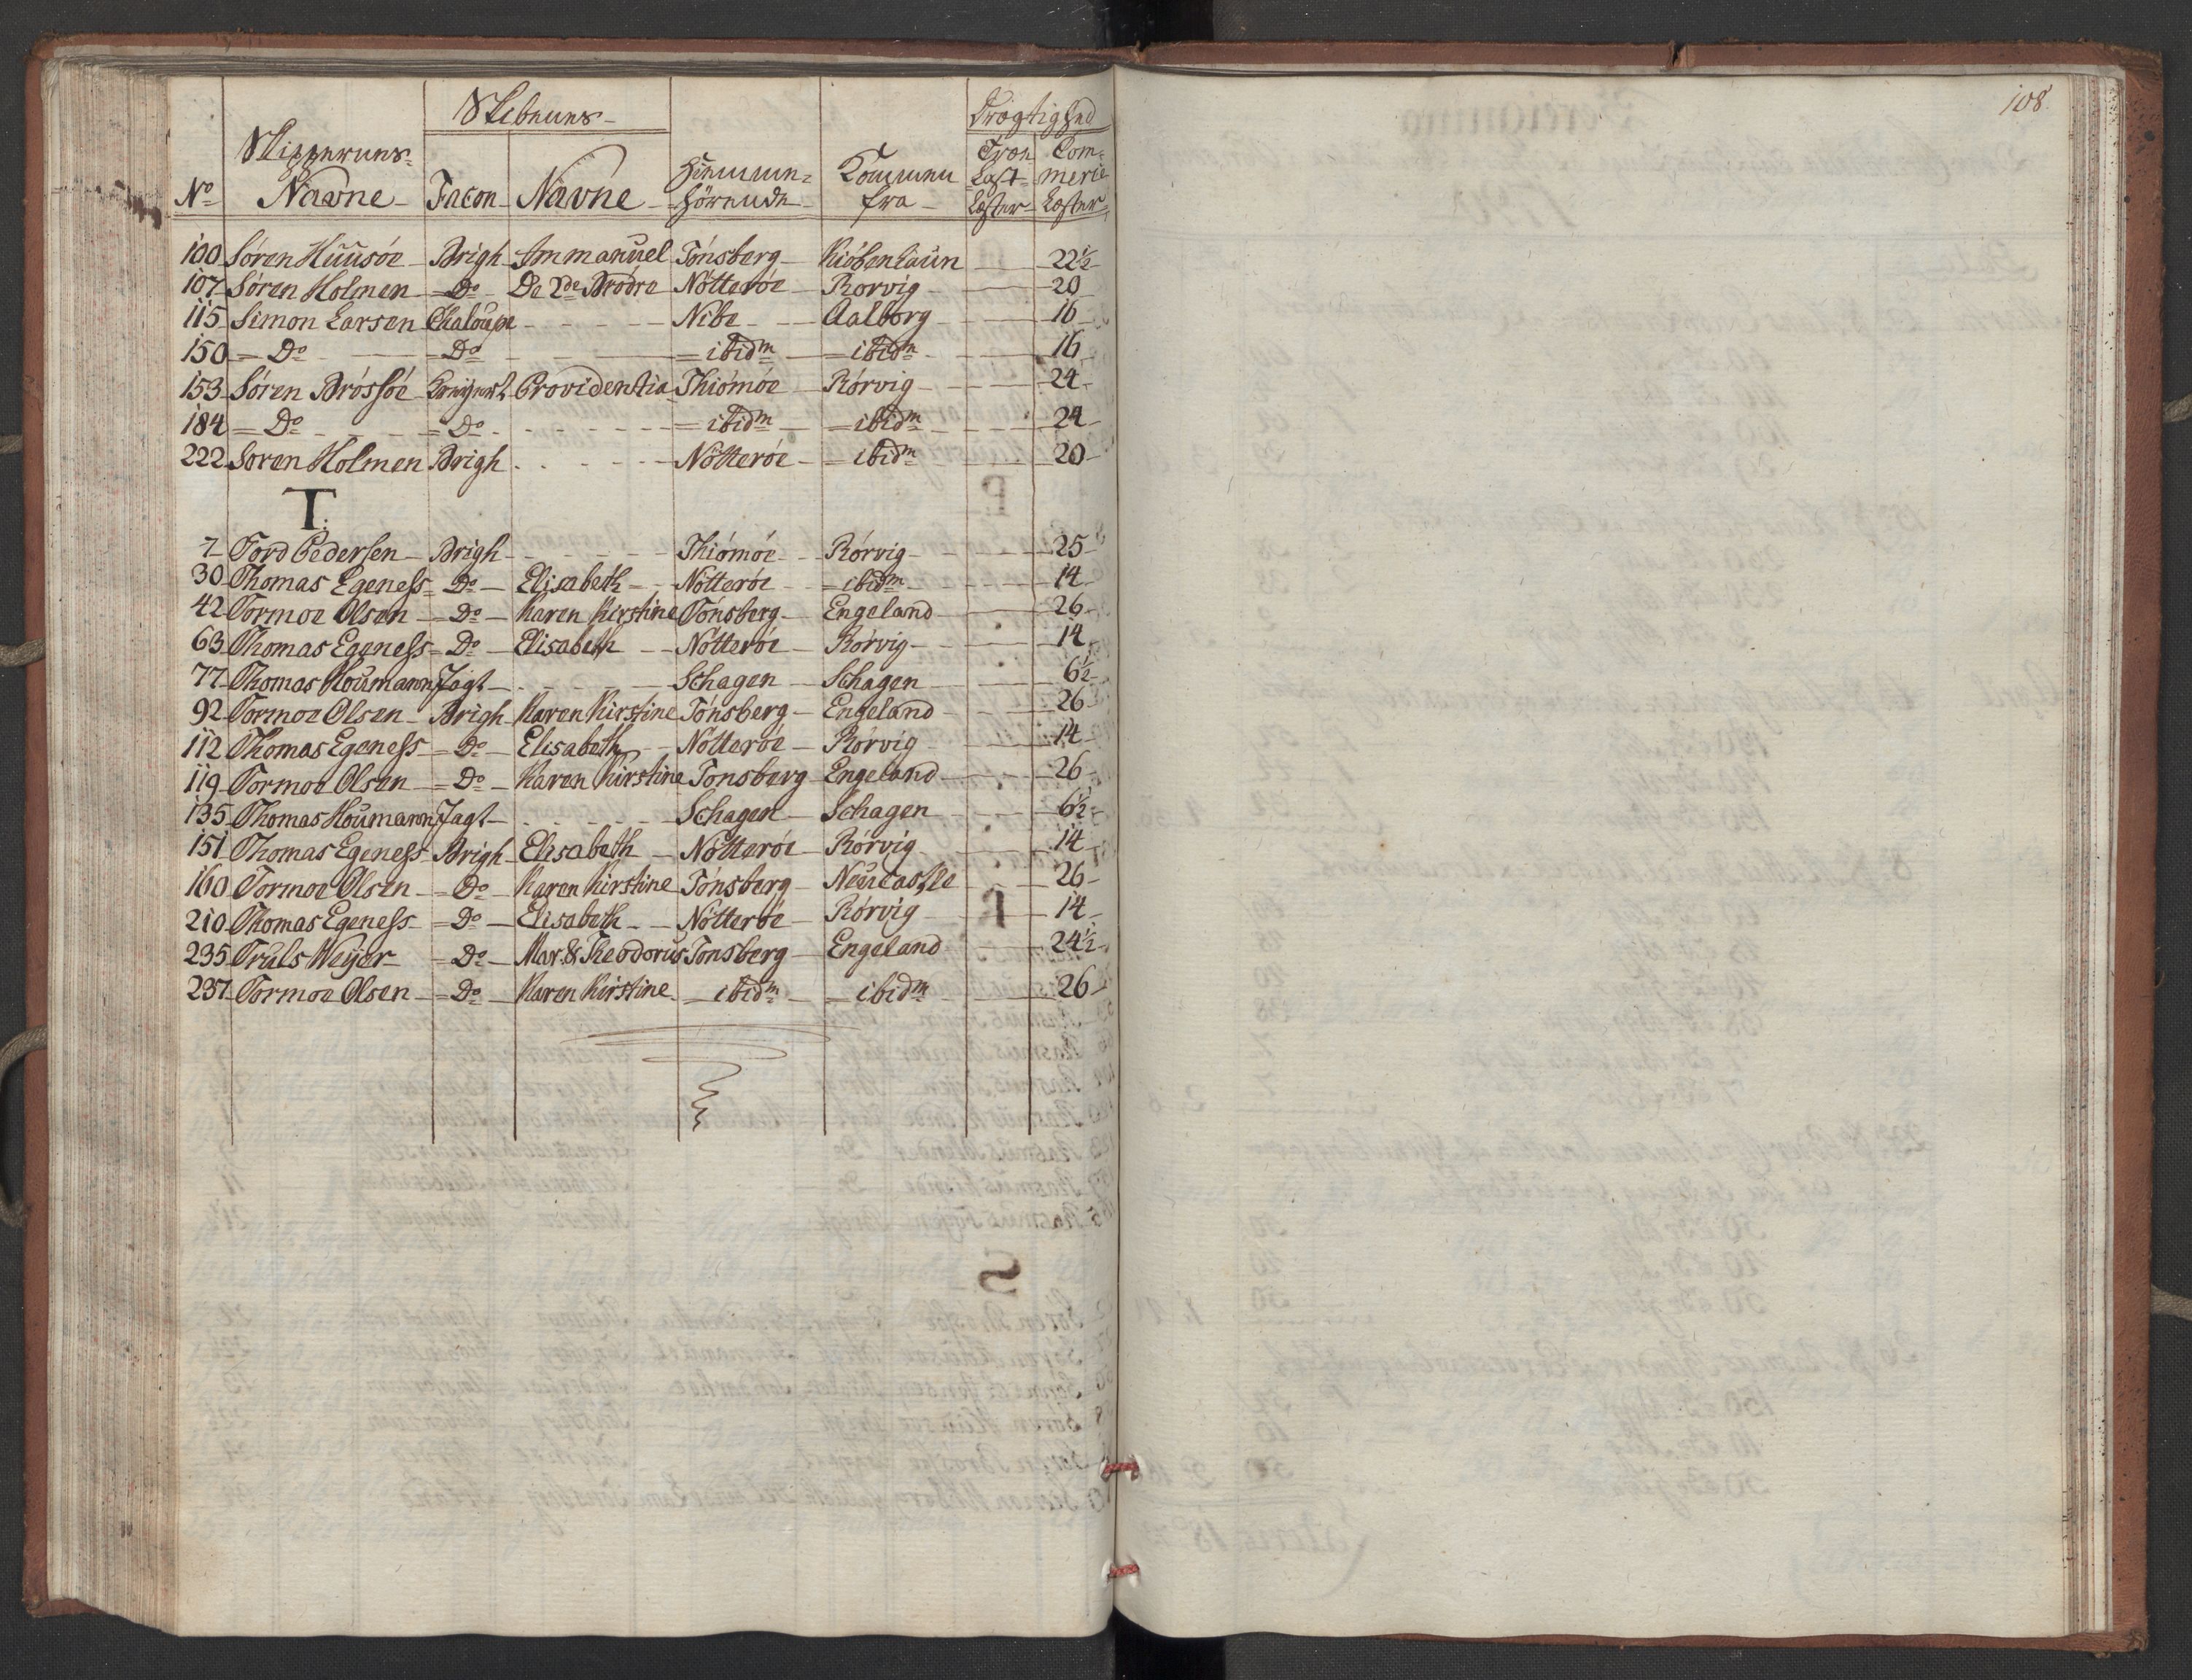 108.
Skibenes
Drægtighed
Skippernes
Træ Com=
Hiemme= Kommen Læst merce
No Navne Facon Navne hörende fra Læster Læster
100 Søren Huusöe Brigh Immanuel Tönsberg Kiöbenhaun 22½
107 Søren Holmen Do De 2de Brödre Nötteröe Rorvig 20
115 Simon Larsen Chaloupe Nibe Aalborg 16
150 Do Do ibidm ibidm 16
153 Søren Brössöe Providentia Thiömöe Rörvig 24
184 Do Do ibidm ibidm 24
222 Soren Holmen Brigh Nötteröe ibidm 20
T.
7 Tord Pedersen Brigh Thiömöe Rörvig 25
30 Thomas Egeness Do Elisabeth Nötteröe ibidm 14
42 Tormoe Olsen Do Karen Kirstine Tönsberg Engeland 26
63 Thomas Egeness Do Elisabeth Nötteröe Rörvig 14
77 Thomas Houmann Jagt Schagen Schagen 6½
92 Tormoe Olsen Brigh Karen Kirstine Tönsberg Engeland 26
112 Thomas Egeness Do Elisabeth Nötteröe Rörvig 14
119 Tormoe Olsen Do Karen Kirstine Tonsberg Engeland 26
135 Thomas Houmann Jagt Schagen Schagen 6½
151 Thomas Egeness Brigh Elisabeth Nötteröe Rörvig 14
160 Tormoe Olsen Do Karen Kirstine Tönsberg Neucastle 26
210 Thomas Egeness Do Elisabeth Nötteröe Rörvig 14
235 Truls Weyer Do Mar. & Theodorus Tonsberg Engeland 24½
237 Tormoe Olsen Do Karen Kirstine ibidm ibidm 26